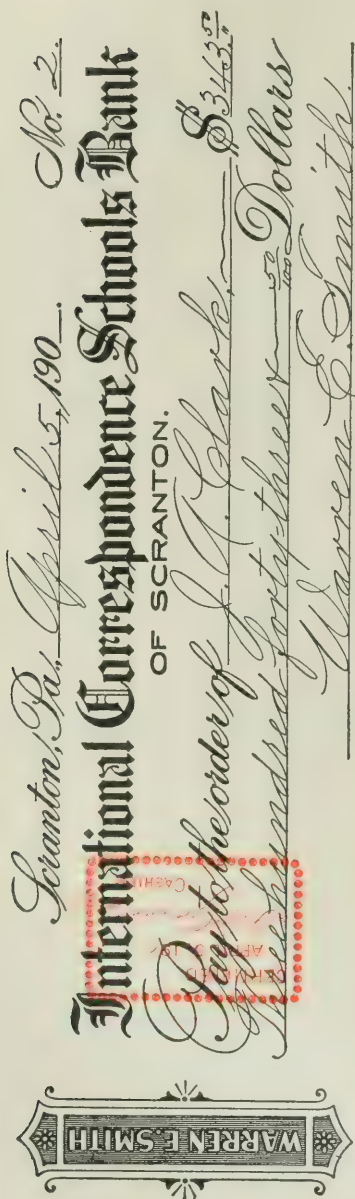 WARREN E. SMITH
Scranton, Pa., April 5, 190_. No. 2.
International Correspondence Schools Bank
OF SCRANTON.
Pay to the order of J. T. Clark, $343.50
Three hundred forty-three & 50/100 Dollars
Warren E. Smith.
CERTIFIED
APR 5 19
CASHIER